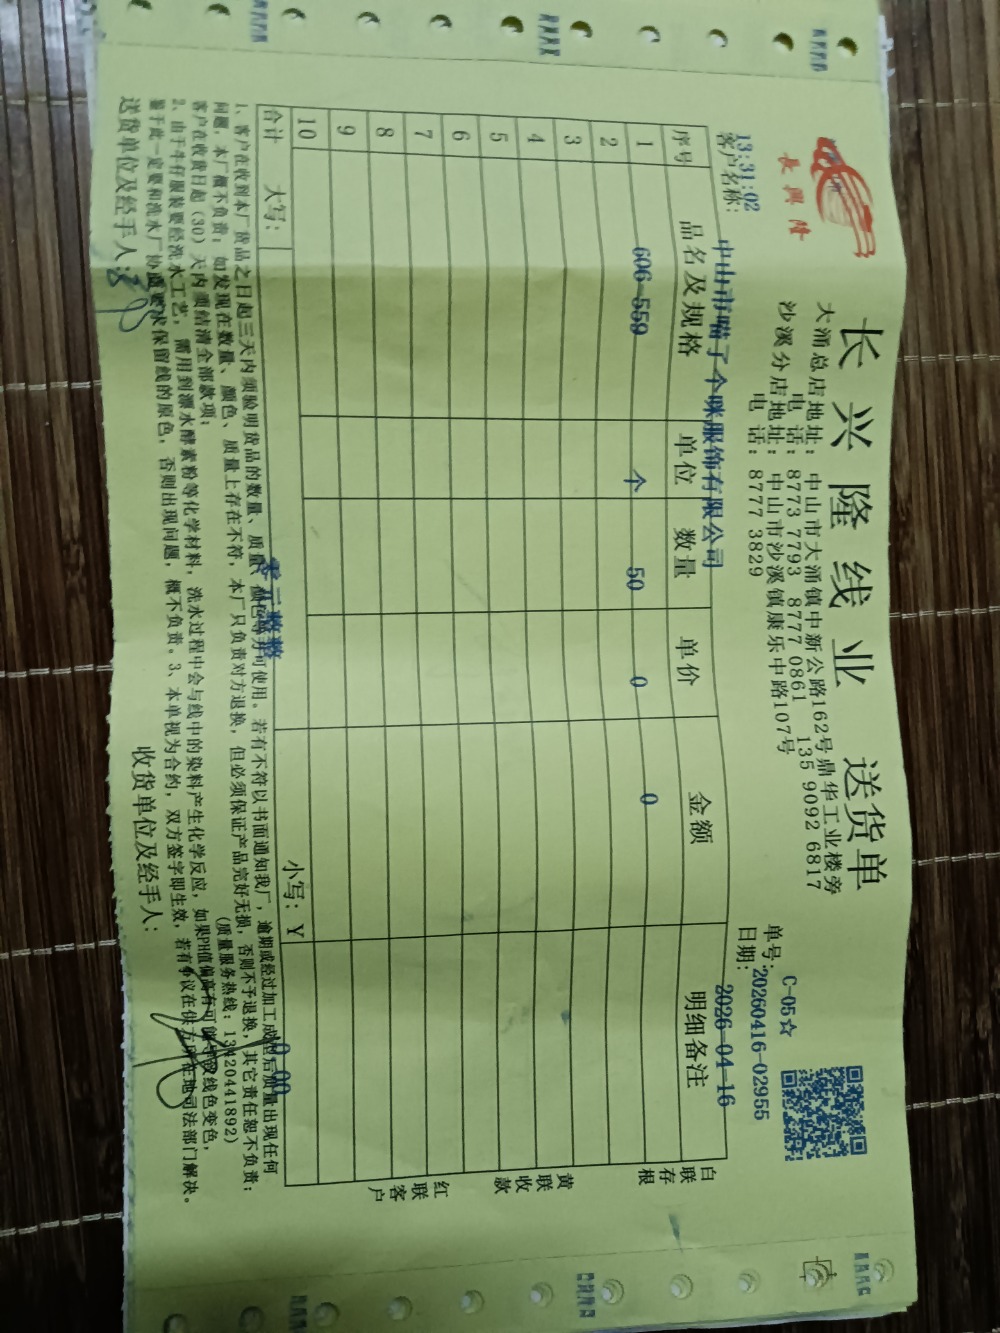 長興隆
长兴隆线业 送货单
大涌总店地址：中山市大涌镇中新公路162号鼎华工业楼旁
电话：8773 7793 8777 0861 135 9092 6817
沙溪分店地址：中山市沙溪镇康乐中路107号
电话：8777 3829
C-05☆
单号：20260416-02955
日期：2026-04-16
13:31:02
客户名称：中山市喵了个咪服饰有限公司
序号 品名及规格 单位 数量 单价 金额 明细备注
1 606-559 个 50 0 0
2
3
4
5
6
7
8
9
10
合计 大写：零元整整 小写：Y 0.00
白联存根
黄联收款
红联客户
1、客户在收到本厂货品之日起三天内须验明货品的数量、质量、颜色等方可使用。若有不符以书面通知我厂，逾期或经过加工成型后质量出现任何
问题，本厂概不负责；如发现在数量、颜色、质量上存在不符，本厂只负责对方退换，但必须保证产品完好无损，否则不予退换，其它责任恕不负责；
客户在收货日起（30）天内须结清全部款项；（质量服务热线：13420441892）
2、由于牛仔服装要经洗水工艺，需用到漂水酵素粉等化学材料，洗水过程中会与线中的染料产生化学反应，如果PH值偏高有可能导致线色变色，
鉴于此一定要和洗水厂协商要求保留线的原色，否则出现问题，概不负责。3、本单视为合约，双方签字即生效，若有争议在供方所在地司法部门解决。
送货单位及经手人： 收货单位及经手人：